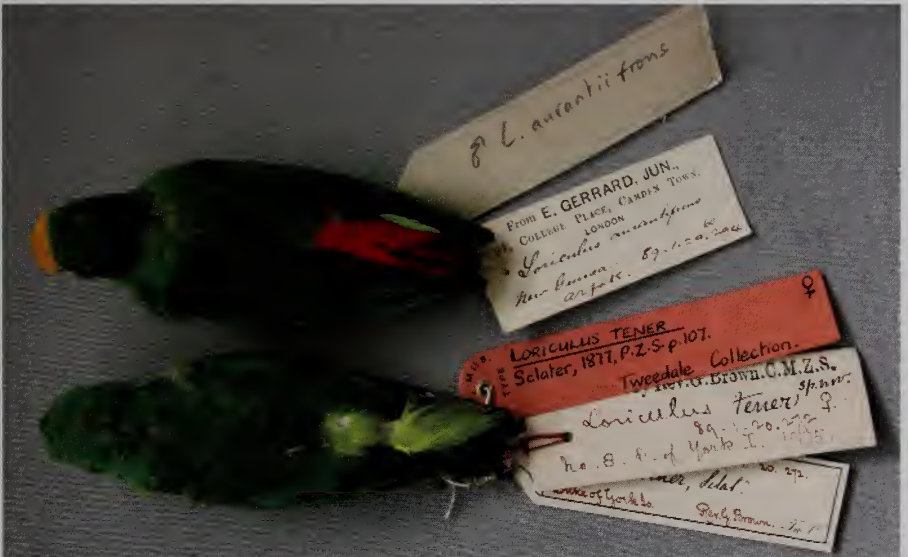 ♂ L. aurantiifrons
From E. GERRARD, JUN.,
COLLEGE PLACE, CAMDEN TOWN,
LONDON
Loriculus aurantiifrons
New Guinea. 89.1.20.204
Arfak.
♀
TYPE
LORICULUS TENER
Sclater, 1877, P.Z.S. p.107.
Tweedale Collection.
Rev. G. Brown. C.M.Z.S.
Loriculus tener, sp. nov.
♀
89.1.20.272
No. 8. of York I.
20. 272.
Sclat.
Duke of York Is. Rev. G. Brown